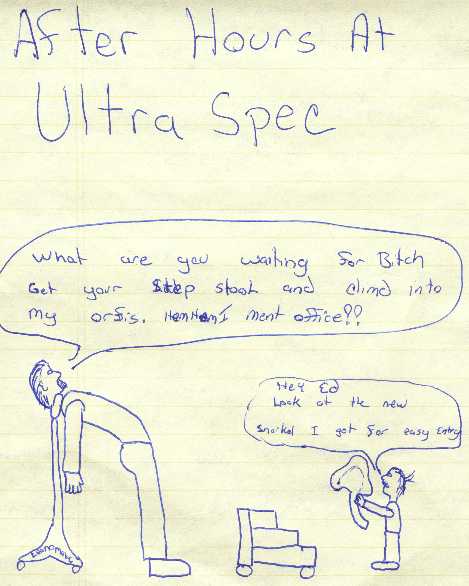 After Hours At
Ultra Spec
What are you waiting for Bitch
Get your Step stool and climd into
my orfis. HemHem I ment office??
Hey Ed
Look at the new
Snorkel I got for easy Entry